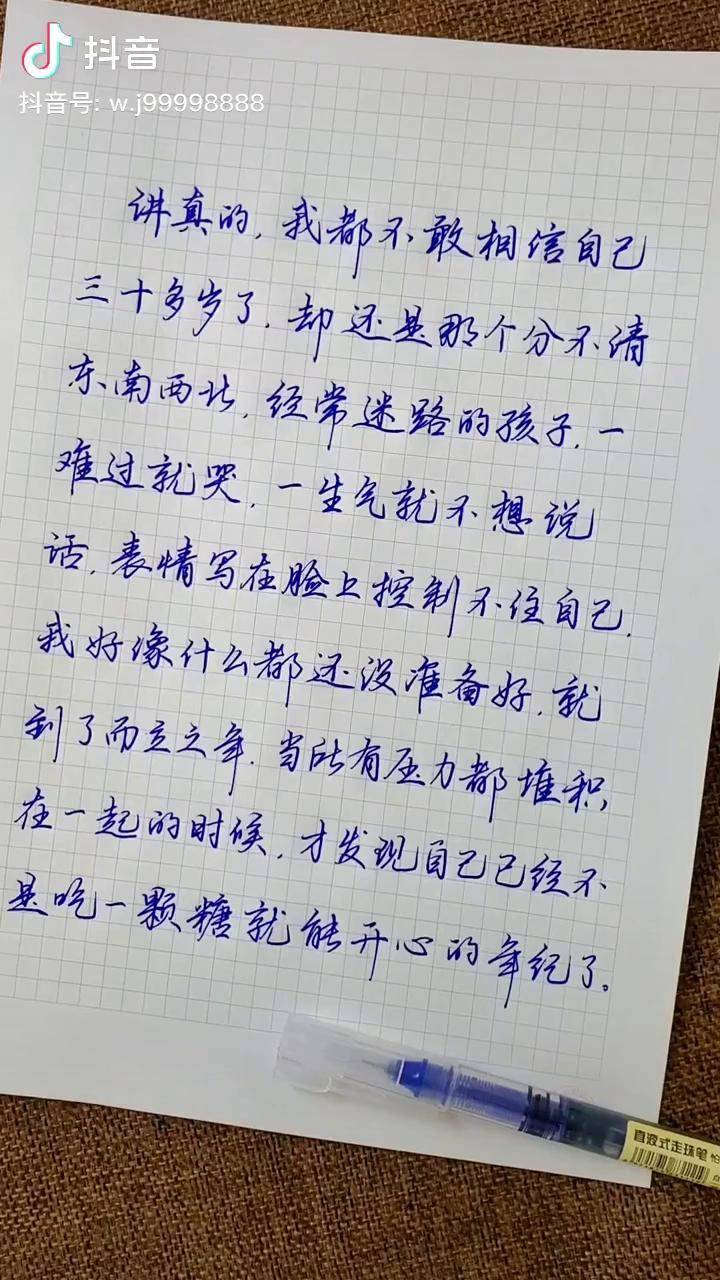 抖音
抖音号: w.j99998888
讲真的,我都不敢相信自己
三十多岁了.却还是那个分不清
东南西北,经常迷路的孩子.一
难过就哭,一生气就不想说
话,表情写在脸上控制不住自己.
我好像什么都还没准备好,就
到了而立之年.当所有压力都堆积
在一起的时候,才发现自己已经不
是吃一颗糖就能开心的年纪了。
直液式走珠笔